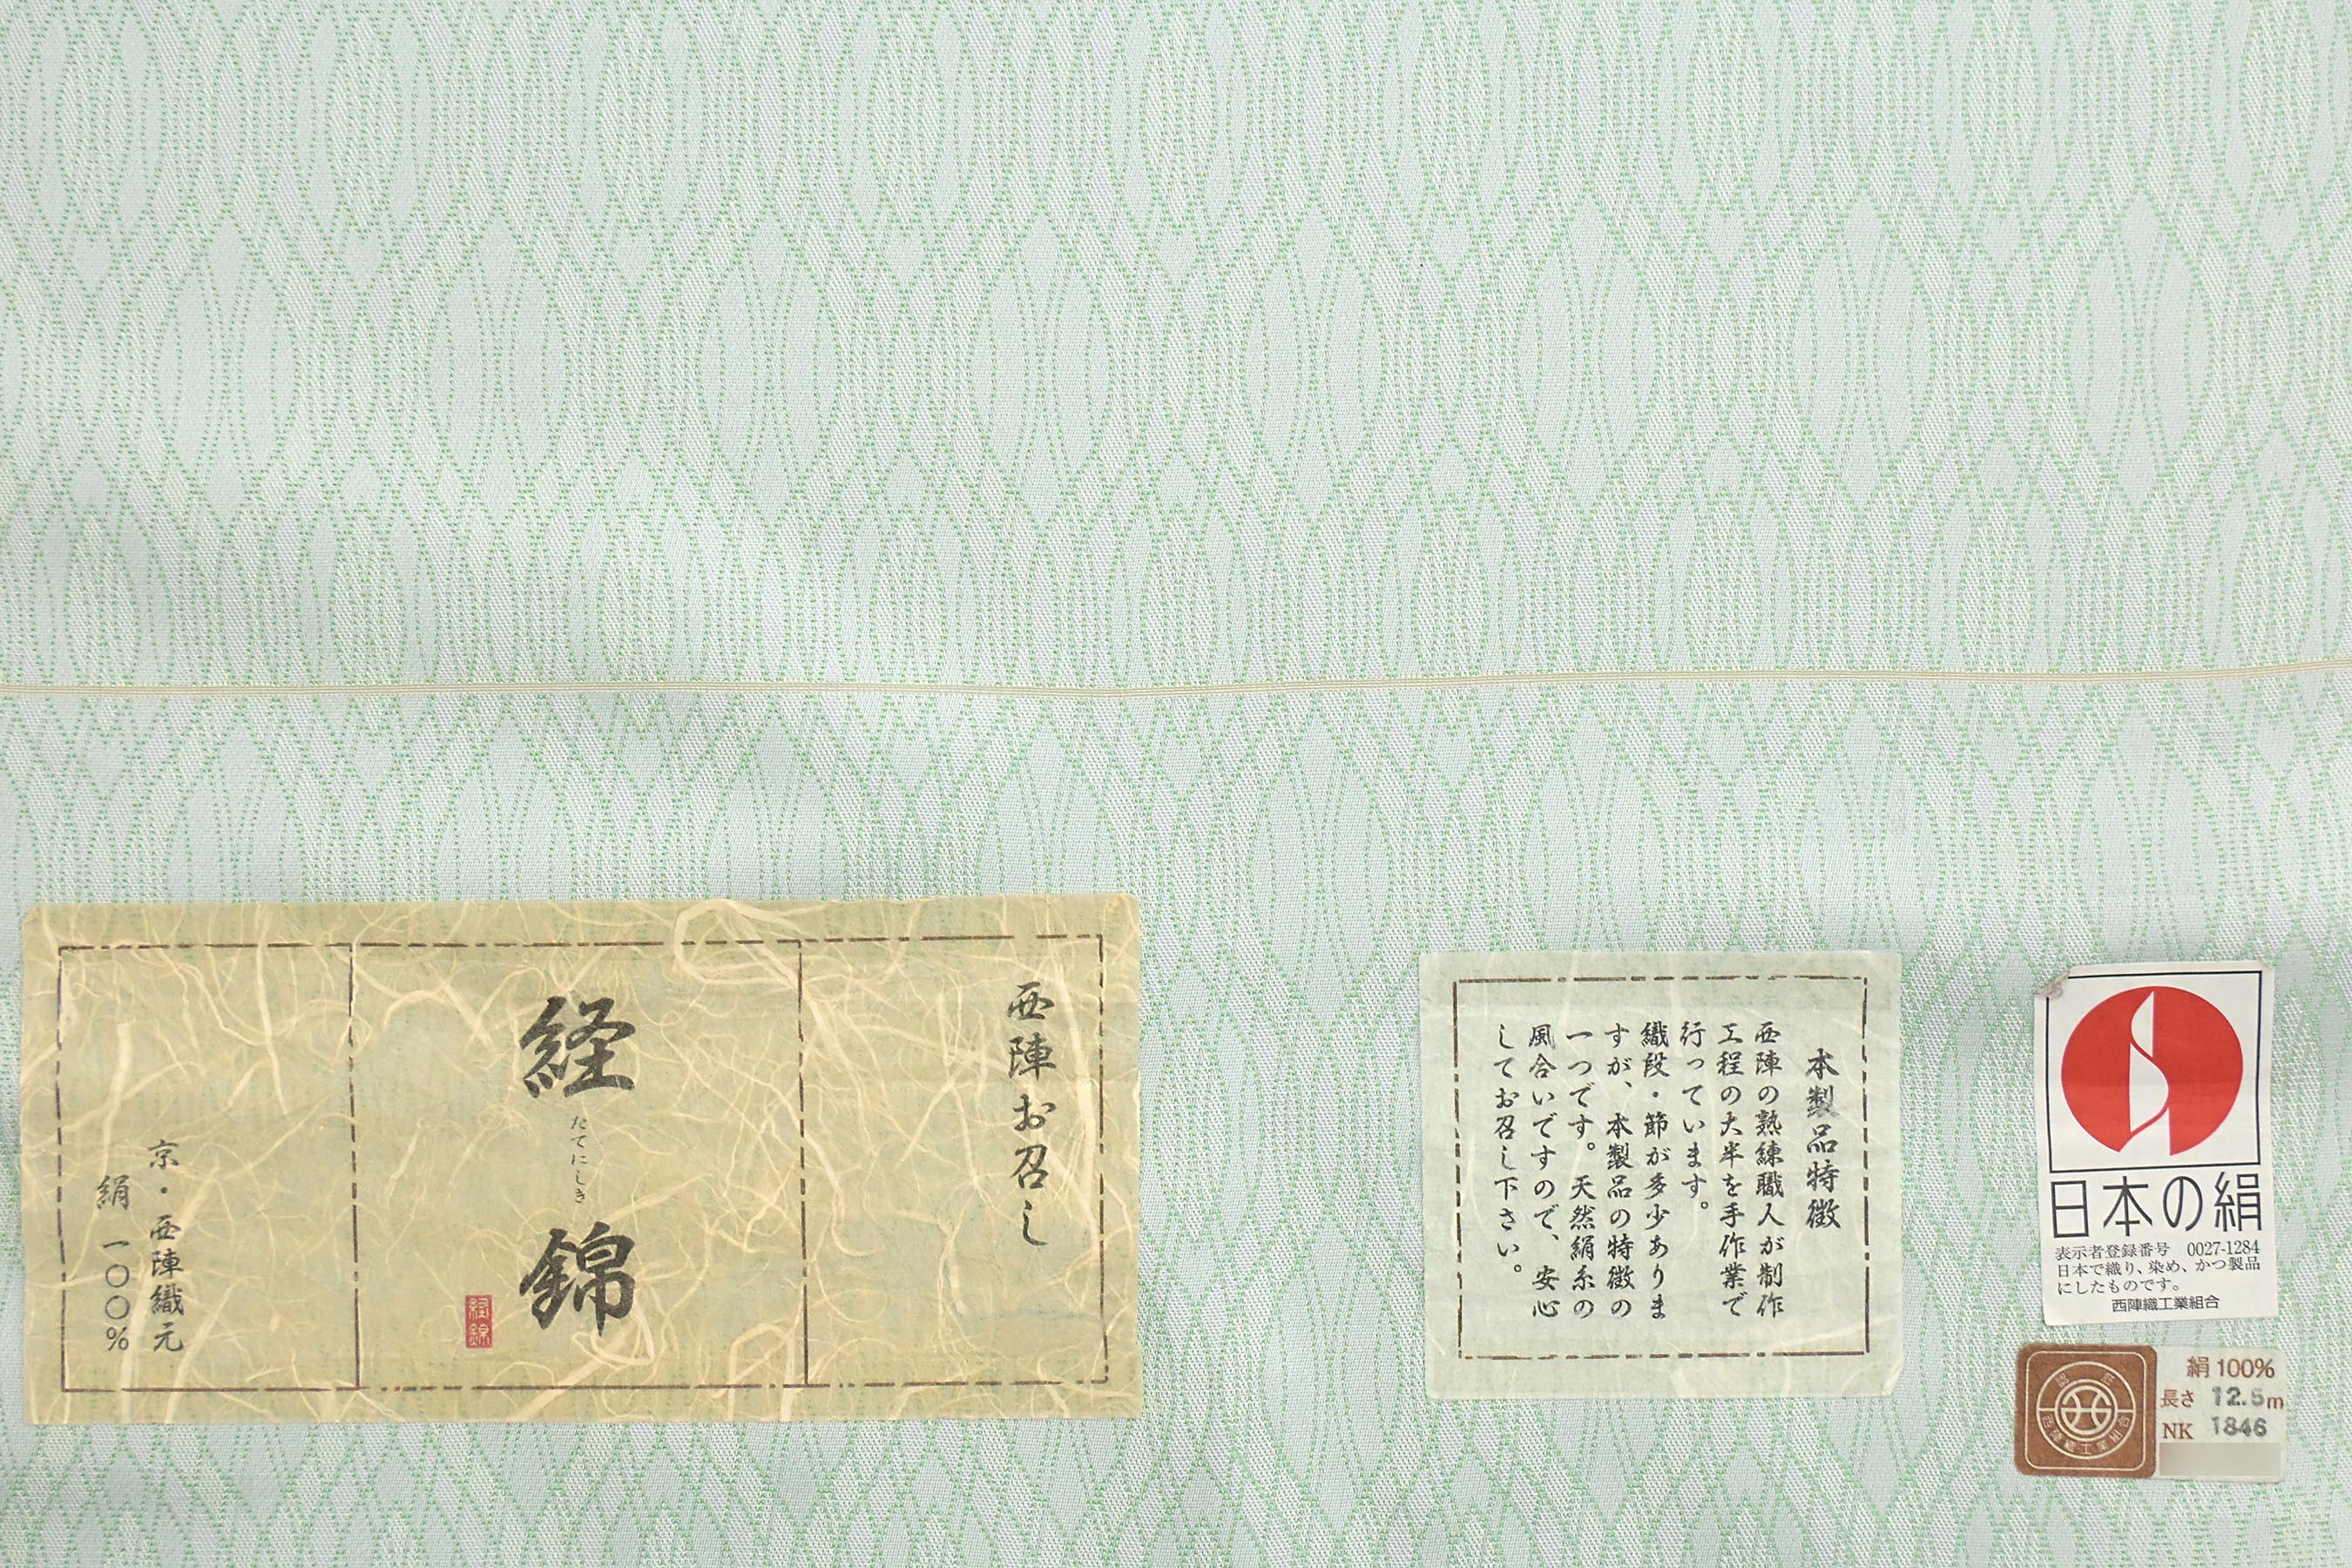 西陣お召し
経
たてにしき
錦
経錦
京・西陣織元
絹 一〇〇%
本製品特徴
西陣の熟練職人が制作
工程の大半を手作業で
行っています。
織段・節が多少ありま
すが、本製品の特徴の
一つです。天然絹糸の
風合いですので、安心
してお召し下さい。
日本の絹
表示者登録番号 0027-1284
日本で織り、染め、かつ製品
にしたものです。
西陣織工業組合
西陣織工業組合
絹 100%
長さ 12.5m
NK 1846